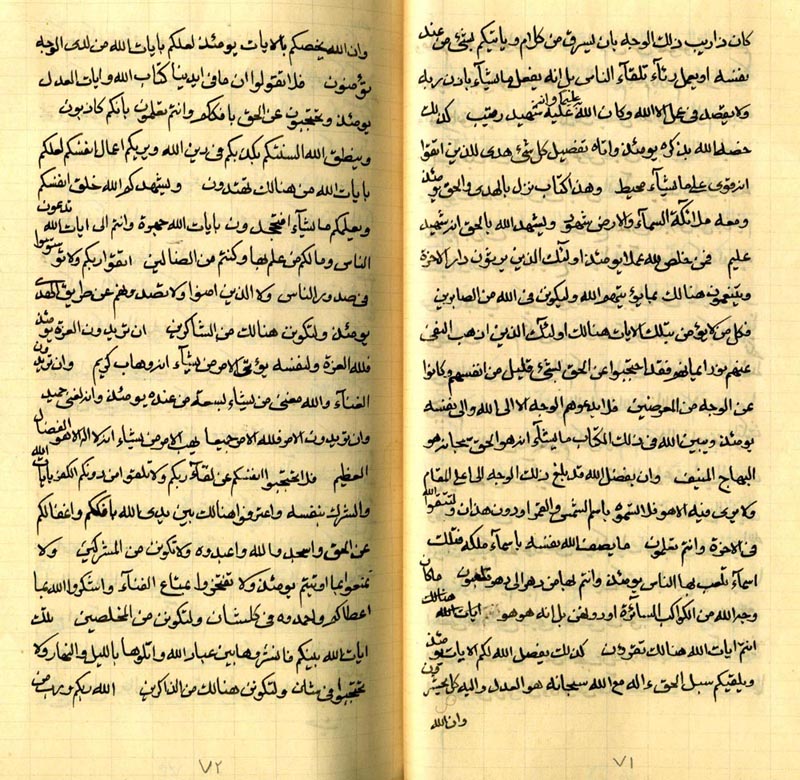 كان ذاريب ذلك الوجه بان ليسرق من كلام وياتيكم بشئ من عند
نفسه اويعمل رئآء تلقآء الناس بل إنه يفعل ما يشآء باذن ربه
ولا يقصد في عمل الا الله وكان الله عليه شهيد رقيب كذلك
عليم وانتم
خصله الله بذكره يومئذ واتاه تفصيل كل شئ هدى للذين اتقوا
انه قوى على ما يشآء محيط وهذا كتاب نزل بالهدى والحق يومئذ
ومعه ملائكة السمآء والارض شهود ويشهد الله بالحق انه شهيد
عليم فمن خلص لله عملا يومئذ اولئك الذين يرثون دار الاخرة
ويتنعمون هنالك بما يؤتيهم الله وليكون في الله من الصابرين
فكل من لا يؤمن بتلك الايات هنالك اولئك الذين اذهب البغى
عنهم نور ايمانهم فقد احتجبوا عن الحق لشئ قليل من انفسهم وكانوا
عن الوجه من المعرضين فلا يدعوهم الوجه الا الى الله والى نفسه
يومئذ ويبين الله في ذلك الكتاب ما يشآء انه هو الحق سبحانه هو
البهاج المنيف وان بفضل الله قد بلغ ذلك الوجه الى اعلى المقام
ولا يرى فيه الا هو فلا تسموه باسم الشمس والقمر اودون هذان ولتتقوا الله
فى الاخرة وانتم تعلمون ما يصف الله نفسه باسمآء ملكه فتلك
اسمآء يلعب بها الناس يومئذ وانتم لها من دهر الى دهر تلعبون ما كان
وجه الله من الكواكب السائرة اودونهن بل إنه هو هو ايات الله هنالك
انتم ايات الله هنالك تقرؤن كذلك يفصل الله لكم الايات يومئذ
ويلقيكم سبل الحق ءاله مع الله سبحانه هو العدل واليه كل يحشرون
وان الله
٧١
وان الله يخصكم بالايات يومئذ لعلكم بايات الله من لدى الوجه
تؤمنون فلا تقولوا ان ما فى ايدينا كتاب الله وايات العدل
يومئذ وتحتجبون عن الحق بافككم وانتم تعلمون بانكم كاذبون
وينطق الله السنتكم بكذبكم فى دين الله ويريكم اعمال انفسكم لعلكم
بايات الله من هنالك تهتدون ويشهدكم الله خلق انفسكم
ويعلمكم ما يشآء افتجحدون بايات الله جهرة وانتم الى ايات الله تدعون
الناس وما لكم من علم بها وكنتم من الضالين اتقوا ربكم ولا توسوسوا
فى صدور الناس ولا الذين امنوا ولا تصدونهم عن طريق الهدى
يومئذ ولتكونن هنالك من الشاكرين ان تريدون العزة يومئذ
فلله العزة ولنفسه يؤتى الامر من يشآء انه وهاب كريم وان تريدون
الغنآء والله مغنى من يشآء بسعة من عنده يومئذ وانه لغنى حميد
وان تريدون الامر فلله الامر جميعا يهب الامر من يشآء انه لا اله الا هو الفضال
العظيم فلا تحتجبوا انفسكم عن لقآء ربكم ولا تلقوا من دونكم الكفر بايات الله
والشرك بنفسه واعترفوا هنالك بين يدى الله بافككم واغفالكم
عن الحق واسجدوا لله واعبدوه ولا تكونن من المشركين ولا
تمنعوا بما اوتيتم يومئذ ولا تفتخروا بمتاع الفنآء واشكروا الله بما
اعطاكم واحمدوه فى كلشان ولتكونن من المخلصين تلك
ايات الله بينكم فانشروها بين عباد الله واتلوها بالليل والنهار ولا
تحتجبوا فى شان ولتكونن هنالك من الذاكرين الله ربكم ورب من
٧٢